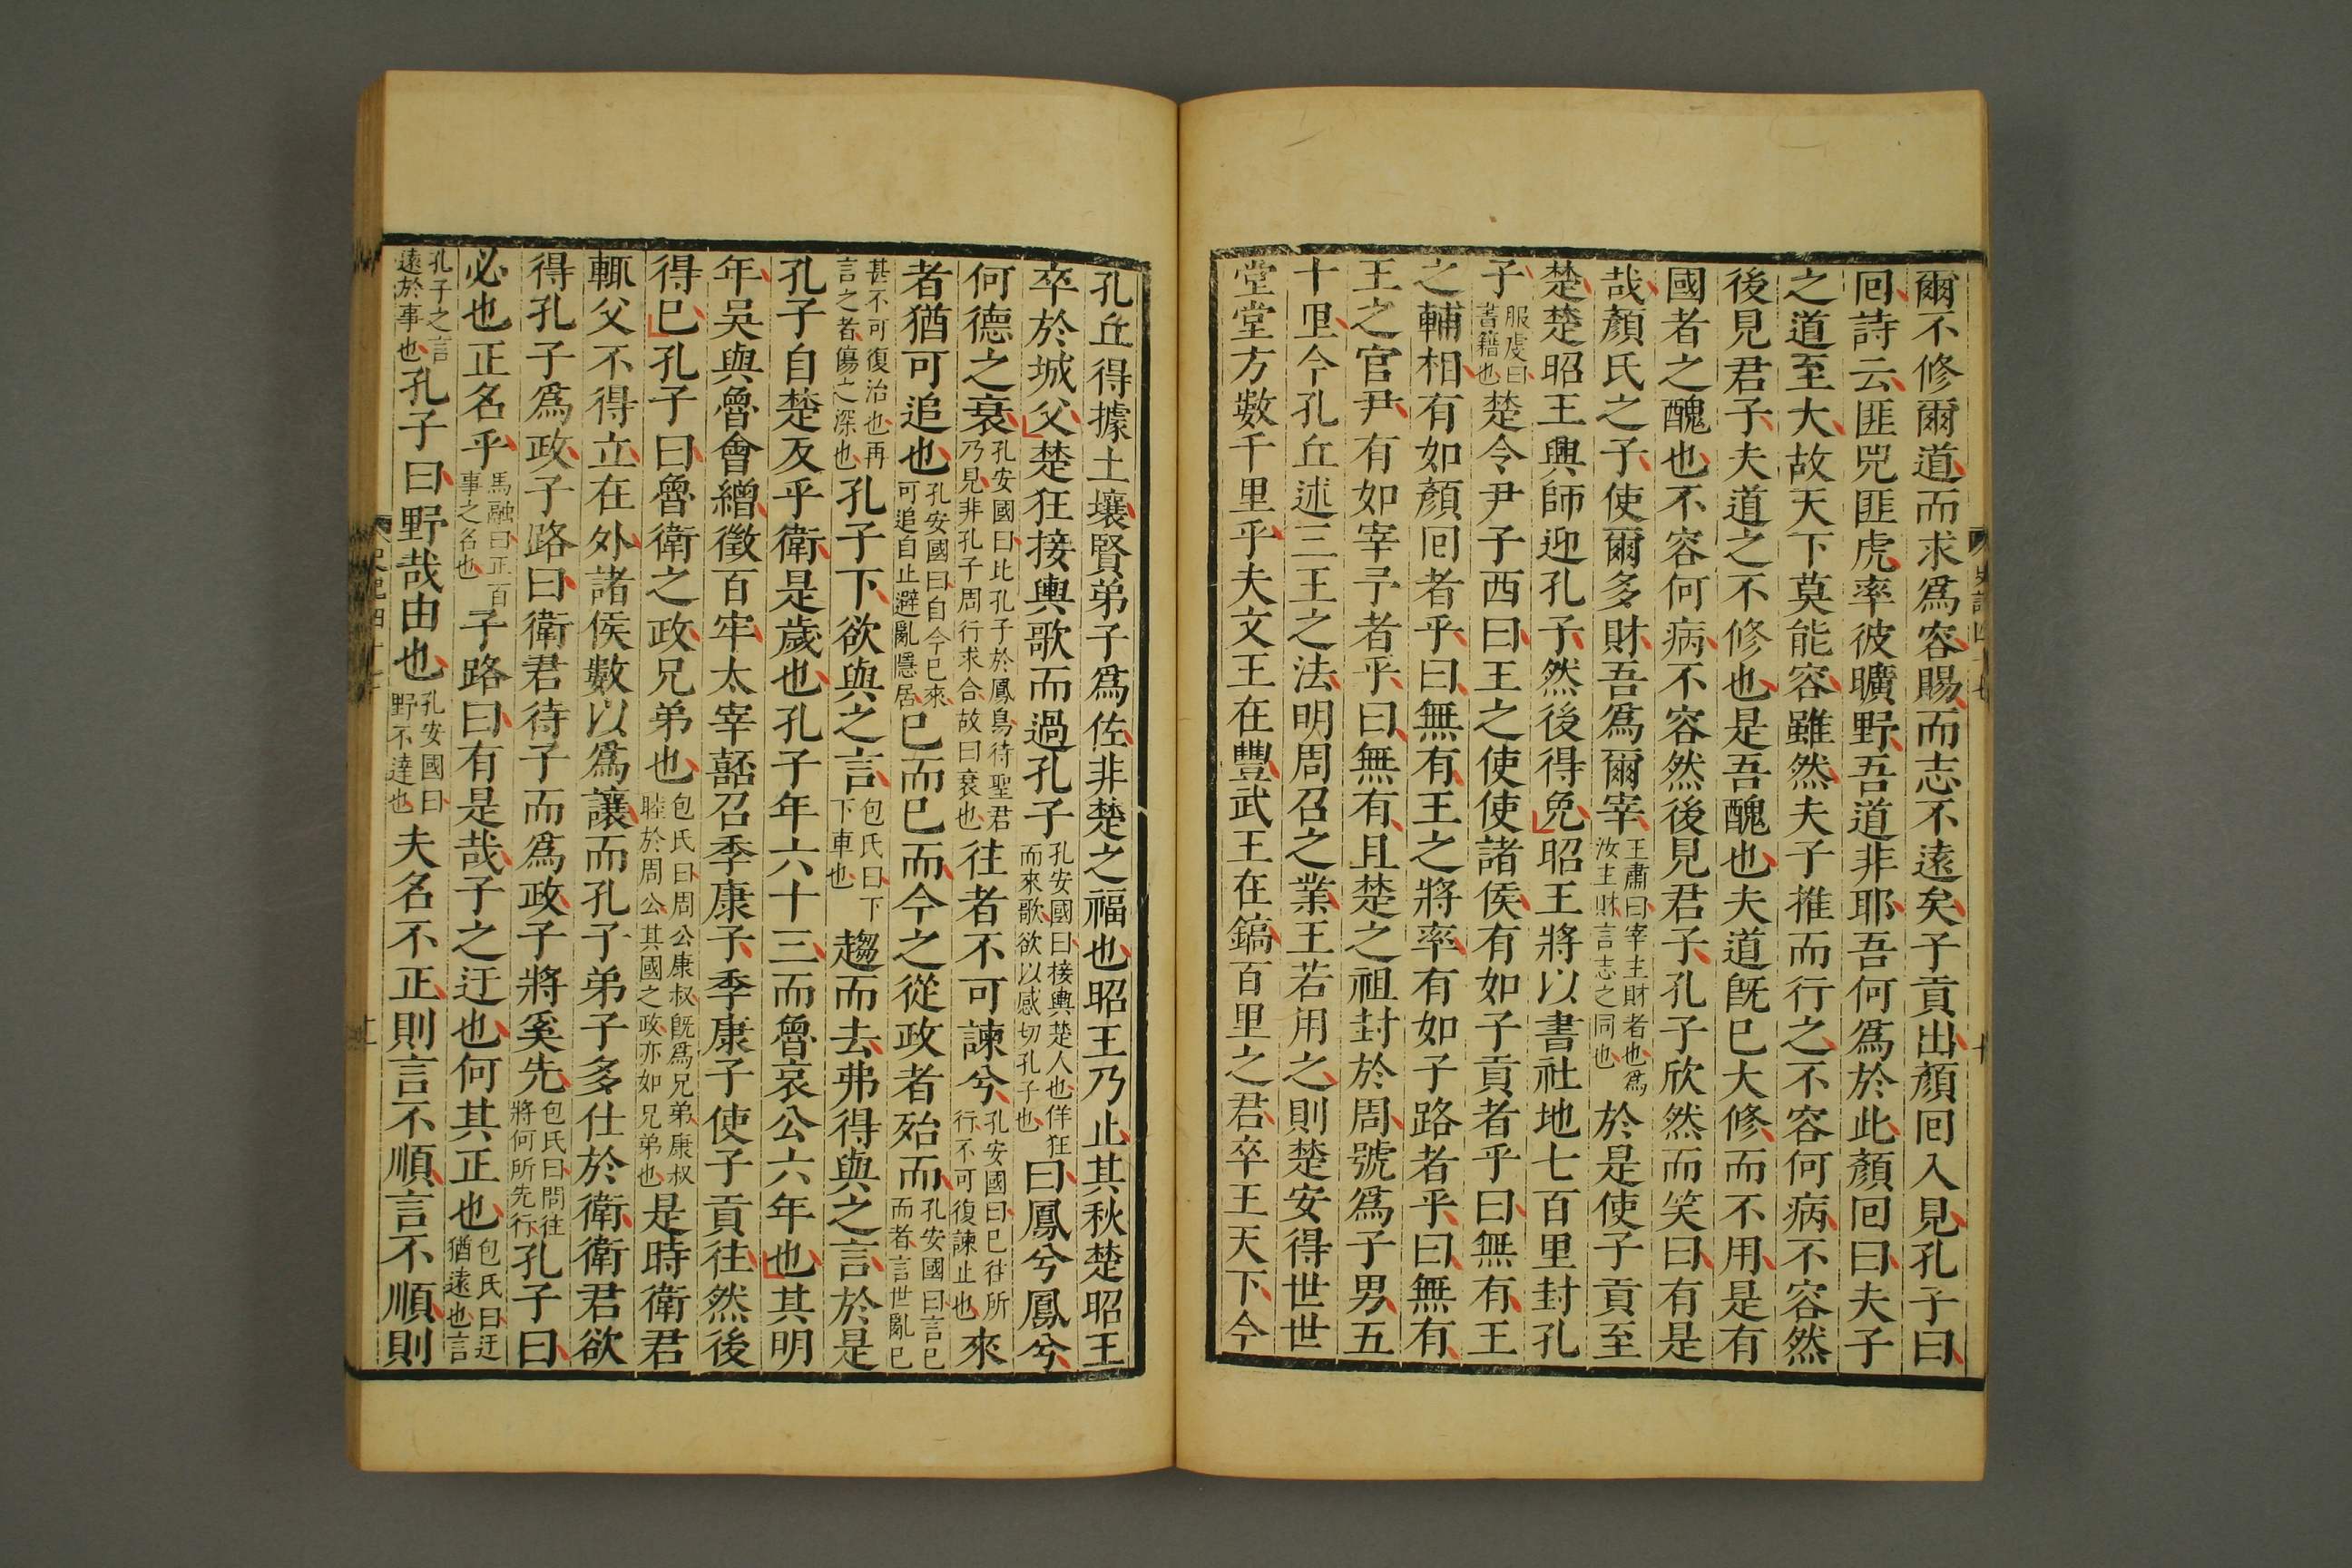 爾不修爾道而求爲容賜而志不遠矣子貢出顏回入見孔子曰
回詩云匪兕匪虎率彼曠野吾道非耶吾何爲於此顏回曰夫子
之道至大故天下莫能容雖然夫子推而行之不容何病不容然
後見君子夫道之不修也是吾醜也夫道旣已大修而不用是有
國者之醜也不容何病不容然後見君子孔子欣然而笑曰有是
哉顏氏之子使爾多財吾爲爾宰王肅曰宰主財者也爲汝主財言志之同也於是使子貢至
楚楚昭王興師迎孔子然後得免昭王將以書社地七百里封孔
子服虔曰書籍也楚令尹子西曰王之使使諸侯有如子貢者乎曰無有王
之輔相有如顏回者乎曰無有王之將率有如子路者乎曰無有
王之官尹有如宰予者乎曰無有且楚之祖封於周號爲子男五
十里今孔丘述三王之法明周召之業王若用之則楚安得世世
堂堂方數千里乎夫文王在豐武王在鎬百里之君卒王天下今
孔丘得據土壤賢弟子爲佐非楚之福也昭王乃止其秋楚昭王
卒於城父楚狂接輿歌而過孔子孔安國曰接輿楚人也佯狂而來歌欲以感切孔子也曰鳳兮鳳兮
何德之衰孔安國曰比孔子於鳳鳥待聖君乃見非孔子周行求合故曰衰也往者不可諫兮孔安國曰已往所行不可復諫止也來
者猶可追也孔安國曰自今已來可追自止避亂隱居已而已而今之從政者殆而孔安國曰言已而者言世亂已
甚不可復治也再言之者傷之深也孔子下欲與之言包氏曰下下車也趨而去弗得與之言於是
孔子自楚反乎衛是歲也孔子年六十三而魯哀公六年也其明
年吳與魯會繒徵百牢太宰嚭召季康子季康子使子貢往然後
得已孔子曰魯衛之政兄弟也包氏曰周公康叔旣爲兄弟康叔睦於周公其國之政亦如兄弟也是時衛君
輒父不得立在外諸侯數以爲讓而孔子弟子多仕於衛衛君欲
得孔子爲政子路曰衛君待子而爲政子將奚先包氏曰問往將何所先行孔子曰
必也正名乎馬融曰正百事之名也子路曰有是哉子之迂也何其正也包氏曰迂猶遠也言
孔子之言遠於事也孔子曰野哉由也孔安國曰野不達也夫名不正則言不順言不順則